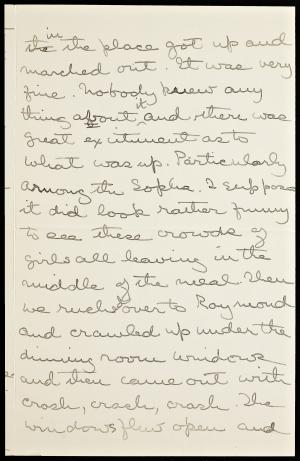 in
the the place got up and
marched out. It was very
fine. Nobody knew any
thing about it and there was
great excitment as to
what was up. Particularly
among the Sophs. I suppose
it did look rather funny
to see these crowds of
girls all leaving in the
middle of the meal. Then
we rushed over to Raymond
and crawled up under the
dinning room windows
and then came out with
crash, crash, crash. The
windows flew open and